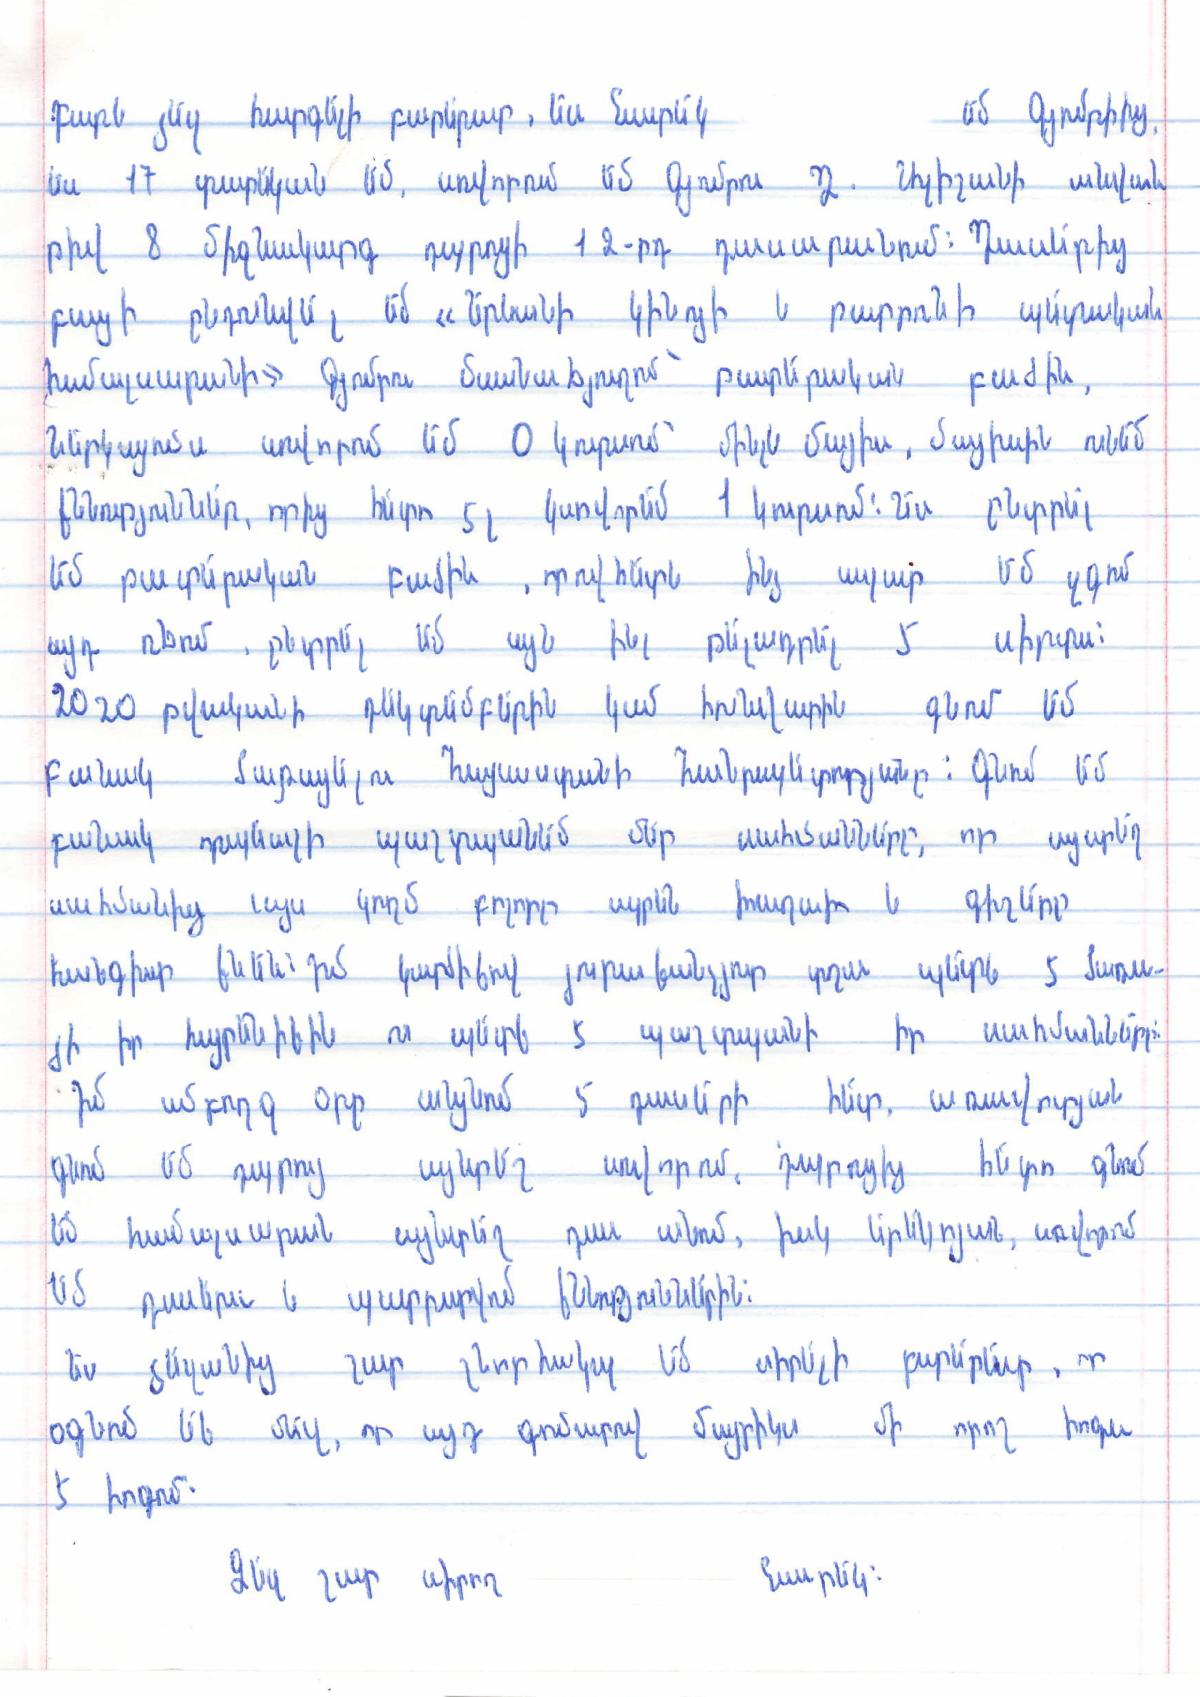 Բարև ձեզ հարգելի բարերար, ես Նարեկ եմ Գյումրիից,
ես 17 տարեկան եմ, սովորում եմ Գյումրու Ղ. Աղիշանի անվան
թիվ 8 միջնակարգ դպրոցի 12-րդ դասարանում: Դասերից
բացի ընդունվել եմ «Երևանի կինոյի և թատրոնի պետական
համալսարանի» Գյումրու մասնաճյուղում՝ թատերական բաժին,
ներկայումս սովորում եմ 0 կուրսում՝ մինչև մայիս, մայիսին ունեմ
քննություններ, որից հետո էլ կսովորեմ 1 կուրսում: Ես ընտրել
եմ թատերական բաժին, որովհետև ինձ ապար եմ զգում
այդ ոճում, ընտրել եմ այն ինչ թելադրել է սիրտս:
2020 թվականի դեկտեմբերին կամ հունվարին գնում եմ
բանակ ծառայելու Հայաստանի Հանրապետությանը: Գնում եմ
բանակ որպեսզի պաշտպանեմ մեր սահմանները, որ այստեղ
սահմանից այս կողմ բոլորը ապրեն խաղաղ և գիշերը
հանգիստ քնեն: Իմ կարծիքով յուրաքանչյուր տղա պետք է ծառա-
յի իր հայրենիքին ու պետք է պաշտպանի իր սահմանները:
Իմ ամբողջ օրը անցնում է դասերի հետ, առավոտյան
գնում եմ դպրոց այնտեղ սովորում, դպրոցից հետո գնում
եմ համալսարան այնտեղ դաս անում, իսկ երեկոյան, սովորում
եմ դասերս և պատրաստվում քննություններին:
Ես ձեզանից շատ շնորհակալ եմ սիրելի բարերար, որ
օգնում եք մեզ, որ այդ գումարով մայրիկս մի որոշ հոգս
է հոգում:
Ձեզ շատ սիրող Նարեկ: